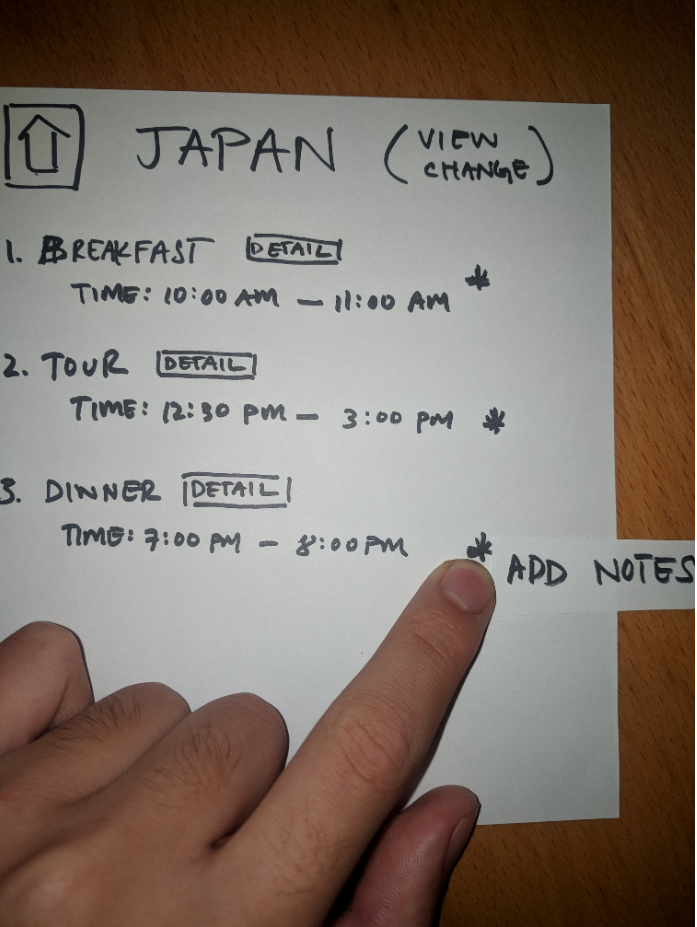 JAPAN (VIEW CHANGE)
1. BREAKFAST DETAIL
TIME: 10:00 AM — 11:00 AM *
2. TOUR DETAIL
TIME: 12:30 PM — 3:00 PM *
3. DINNER DETAIL
TIME: 7:00 PM — 8:00 PM *
ADD NOTES